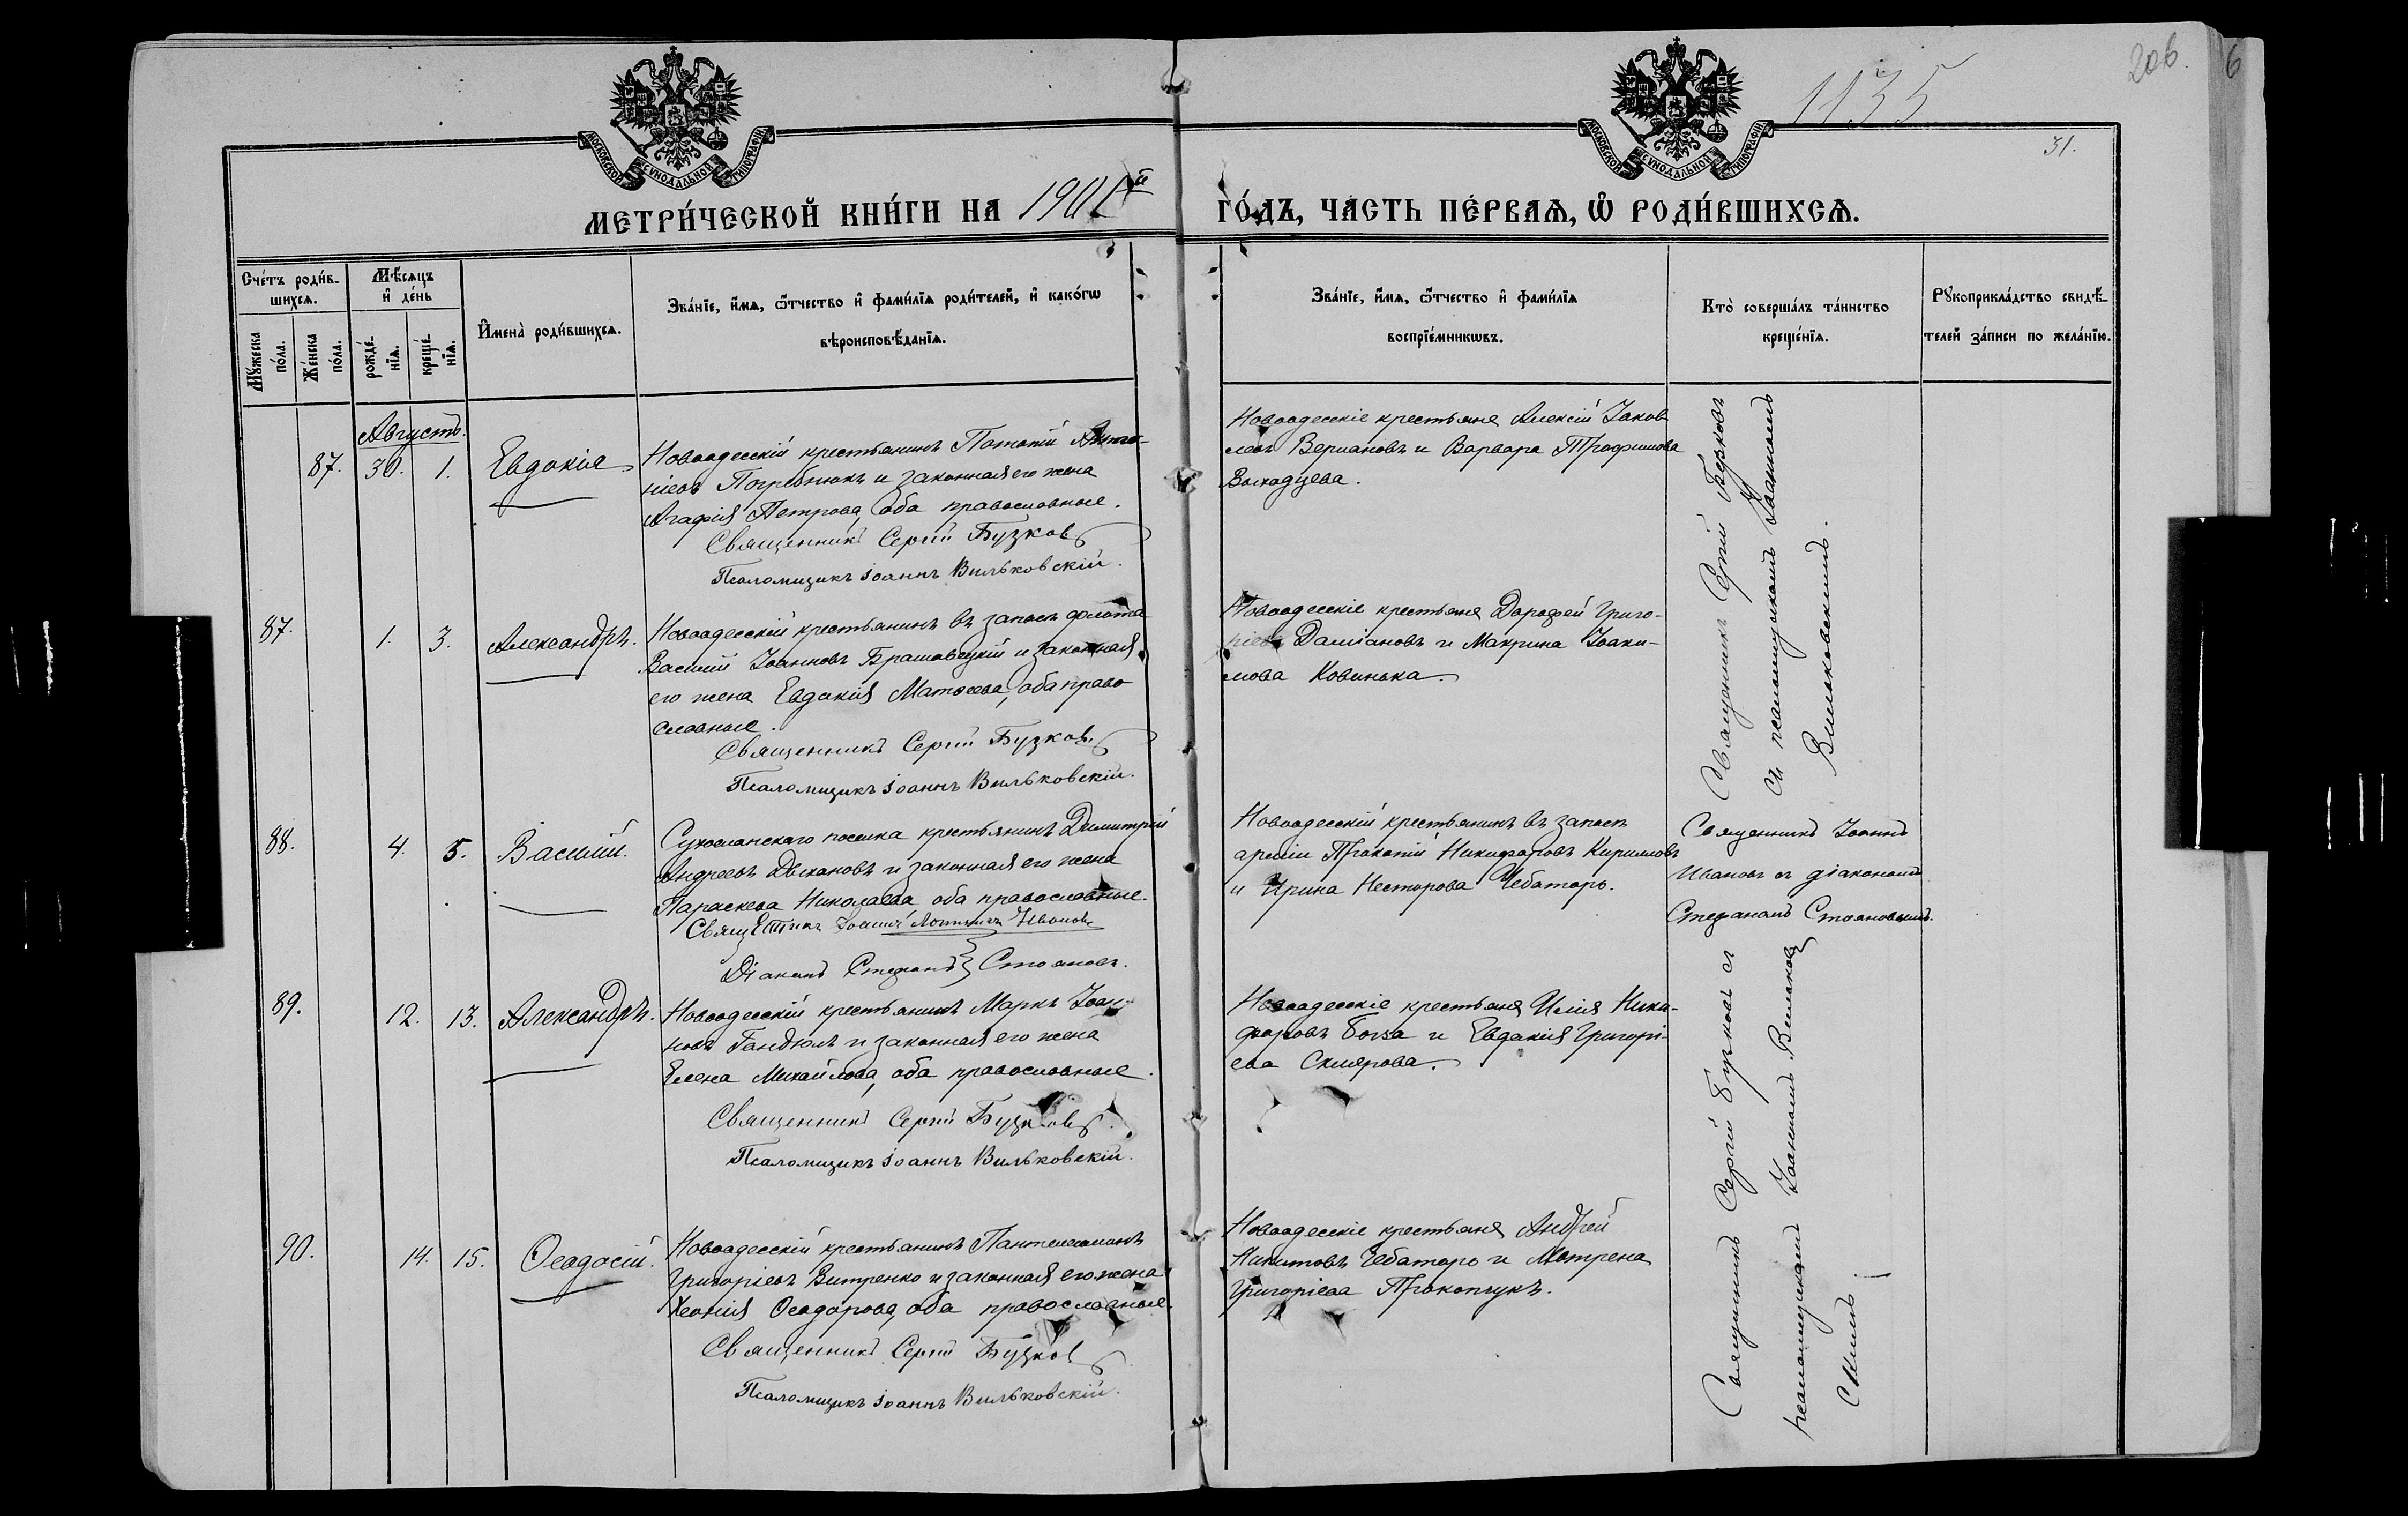 1135
206.
6
31.
МОСКОВСКОЙ СѴНОДАЛЬНОЙ ТИПОГРАФІИ
МОСКОВСКОЙ СѴНОДАЛЬНОЙ ТИПОГРАФІИ
МЕТРИ́ЧЕСКОЙ КНИ́ГИ НА 1901й
ГО́ДЪ, ЧА́СТЬ ПЕ́РВАѦ, Ѡ҆ РОДИ́ВШИХСѦ.
Сче́тъ роди́в-
шихсѧ.
Мꙋ́жеска
по́ла.
Же́нска
по́ла.
Мѣ́сѧцъ
и҆ де́нь
рожде́-
нїѧ.
креще́-
нїѧ.
И҆мена̀ роди́вшихсѧ.
Зва́нїе, и҆́мѧ, ѻ҆́тчество и҆ фами́лїѧ роди́телей, и҆ како́гѡ
вѣроисповѣ́данїѧ.
Зва́нїе, и҆́мѧ, ѻ҆́тчество и҆ фами́лїѧ
воспрїе́мникѡвъ.
Кто̀ соверша́лъ та́инство
креще́нїѧ.
Рꙋкоприкла́дство свидѣ́-
телей за́писи по жела́нїю.
Августъ.
87. 30. 1. Евдокія
Новоодесскій крестьянинъ Потапій Анто-
ніевъ Погребнюкъ и законная его жена
Агафія Петрова, оба православные.
Священникъ Сергій Бузковъ
Псаломщикъ Іоаннъ Вильковскій.
Новоодесскіе крестьяне Алексій Іаков-
левъ Вериановъ и Варвара Трофимова
Священникъ Сергій Бузковъ
съ псаломщикомъ Іоанномъ
Вильковскимъ.
87. 1. 3. Александръ.
Новоодесскій крестьянинъ въ запасѣ флота
Василій Іоанновъ Брашовецкій и законная
его жена Евдокія Матѳеева, оба право
славные.
Священникъ Сергій Бузковъ
Псаломщикъ Іоаннъ Вильковскій.
Новоодесскіе крестьяне Дорофей Григо-
ріевъ Даміановъ и Макрина Іоаки-
мова Ковинька.
88. 4. 5. Василій.
Сухоеланскаго поселка крестьянинъ Димитрій
Андреевъ Дыхановъ и законная его жена
Параскева Николаева оба православные.
Священникъ Іоаннъ Ивановъ
Діаконъ Стефанъ Стояновъ.
Новоодесскій крестьянинъ въ запасѣ
арміи Прокопій Никифоровъ Кириловъ
и Ирина Несторова Чеботарь.
Священникъ Іоаннъ
Ивановъ съ діакономъ
Стефаномъ Стояновымъ.
89. 12. 13. Александръ.
Новоодесскій крестьянинъ Маркъ Іоан-
новъ Гандюлъ и законная его жена
Елена Михайлова, оба православные.
Священникъ Сергій Бузковъ
Псаломщикъ Іоаннъ Вильковскій.
Новоодесскіе крестьяне Илія Ники-
форовъ Боѕза и Евдокія Григорі-
ева Склярова.
Священникъ Сергій Бузковъ съ
псаломщикомъ Іоанномъ Вильков-
скимъ.
90. 14. 15. Ѳеодосій.
Новоодесскій крестьянинъ Пантелеимонъ
Григоріевъ Витренко и законная его жена
Ѳеодорова, оба православные.
Священникъ Сергій Бузковъ
Псаломщикъ Іоаннъ Вильковскій.
Новоодесскіе крестьяне Андрей
Никитовъ Чеботарь и Мотрена
Григоріева Прокопчукъ.